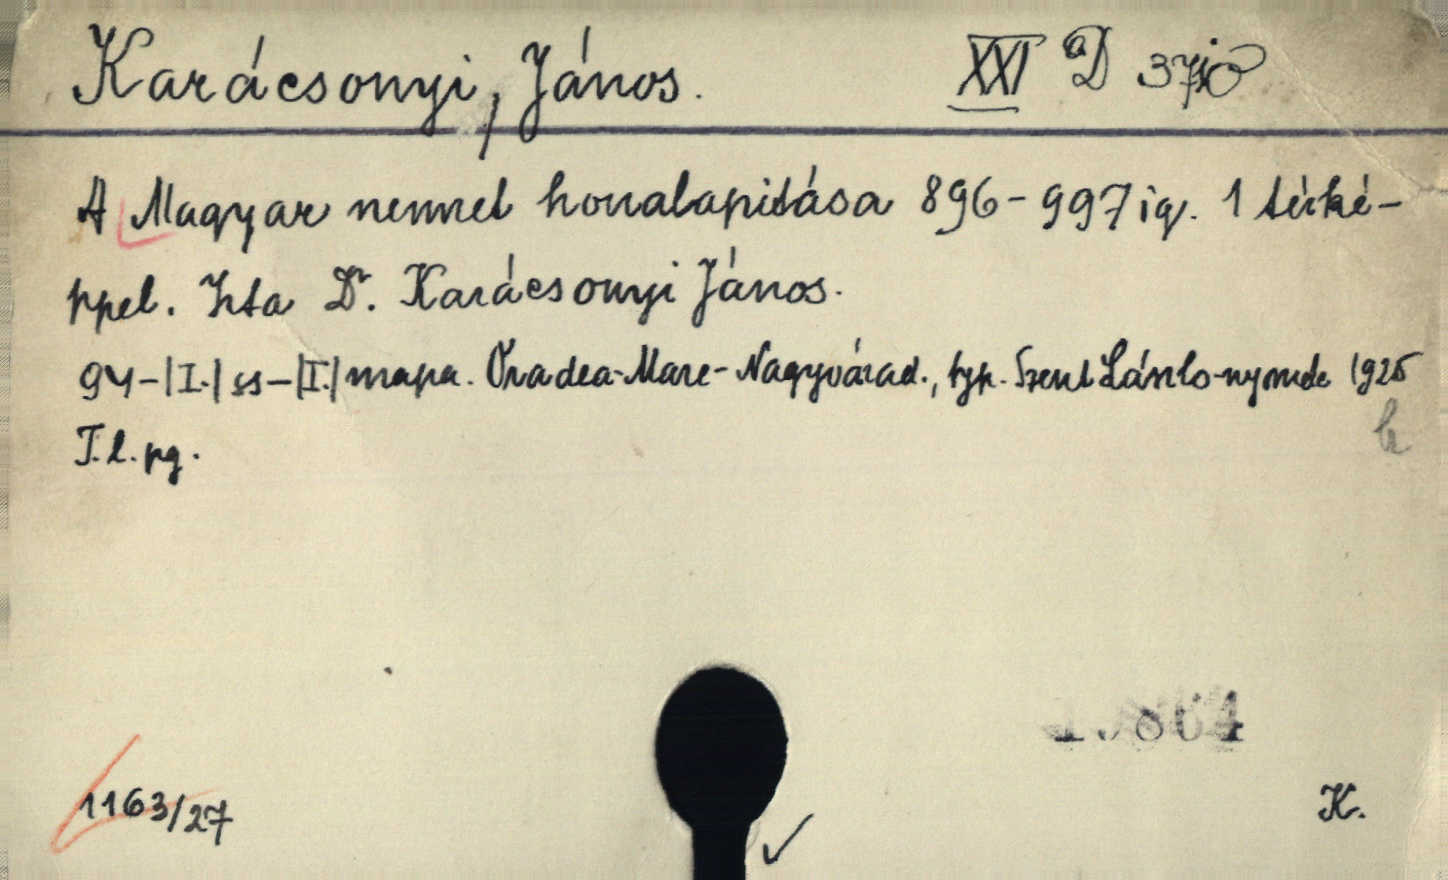 Karácsonyi, János. XXI D
A Magyar nemzet honalapitása 896-997 ig. 1 térké-
ppel. Irta Dr. Karácsonyi János.
94-|I.| ss-|I.| mapa. Oradea-Mare-Nagyvárad., typ. Szent László-nyomda 1925
T. l. pg.
1163/27
K.